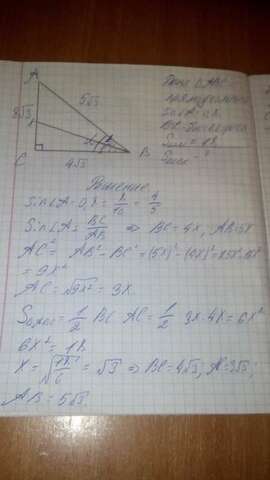 A
5√3
3√3
C
4√3
B
Дано: Δ ABC
прямоугольный
Sin A = 0,8
BK - биссектриса
Решение
Sin∠A = 0,8 = 8/10 = 4/5
Sin∠A = BC/AB ⇒ BC = 4x, AB = 5x
AC² = AB² - BC² = (5x)² - (4x)² = 25x² - 16x²
= 9x²
AC = √9x² = 3x
= 1/2 BC · AC = 1/2 3x · 4x = 6x²
6x² = 18
X = √18/6 = √3 ⇒ BC = 4√3; AC = 3√3;
AB = 5√3